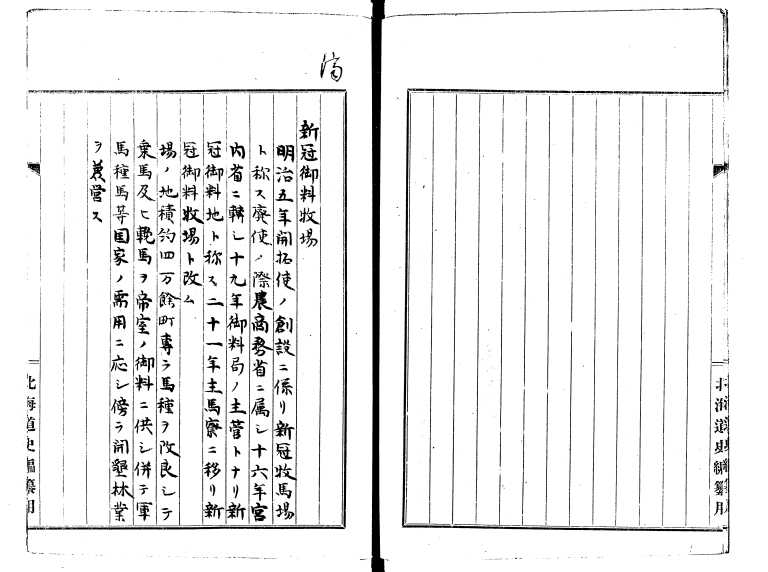 新冠御料牧場
明治五年開拓使ノ創設ニ係リ新冠牧馬場
ト称ス廃使ノ際農商務省ニ属シ十六年宮
内省ニ轉シ十九年御料局ノ主菅トナリ新
冠御料地ト称ス二十一年主馬寮ニ移リ新
冠御料牧場ト改ム
場ノ地積約四万餘町専ラ馬種ヲ改良シテ
乗馬及ヒ輓馬ヲ帝室ノ御料ニ供シ併テ軍
馬種馬等国家ノ需用ニ応シ傍ラ開墾林業
ヲ兼営ス
北海道史編纂用
北海道史編纂用